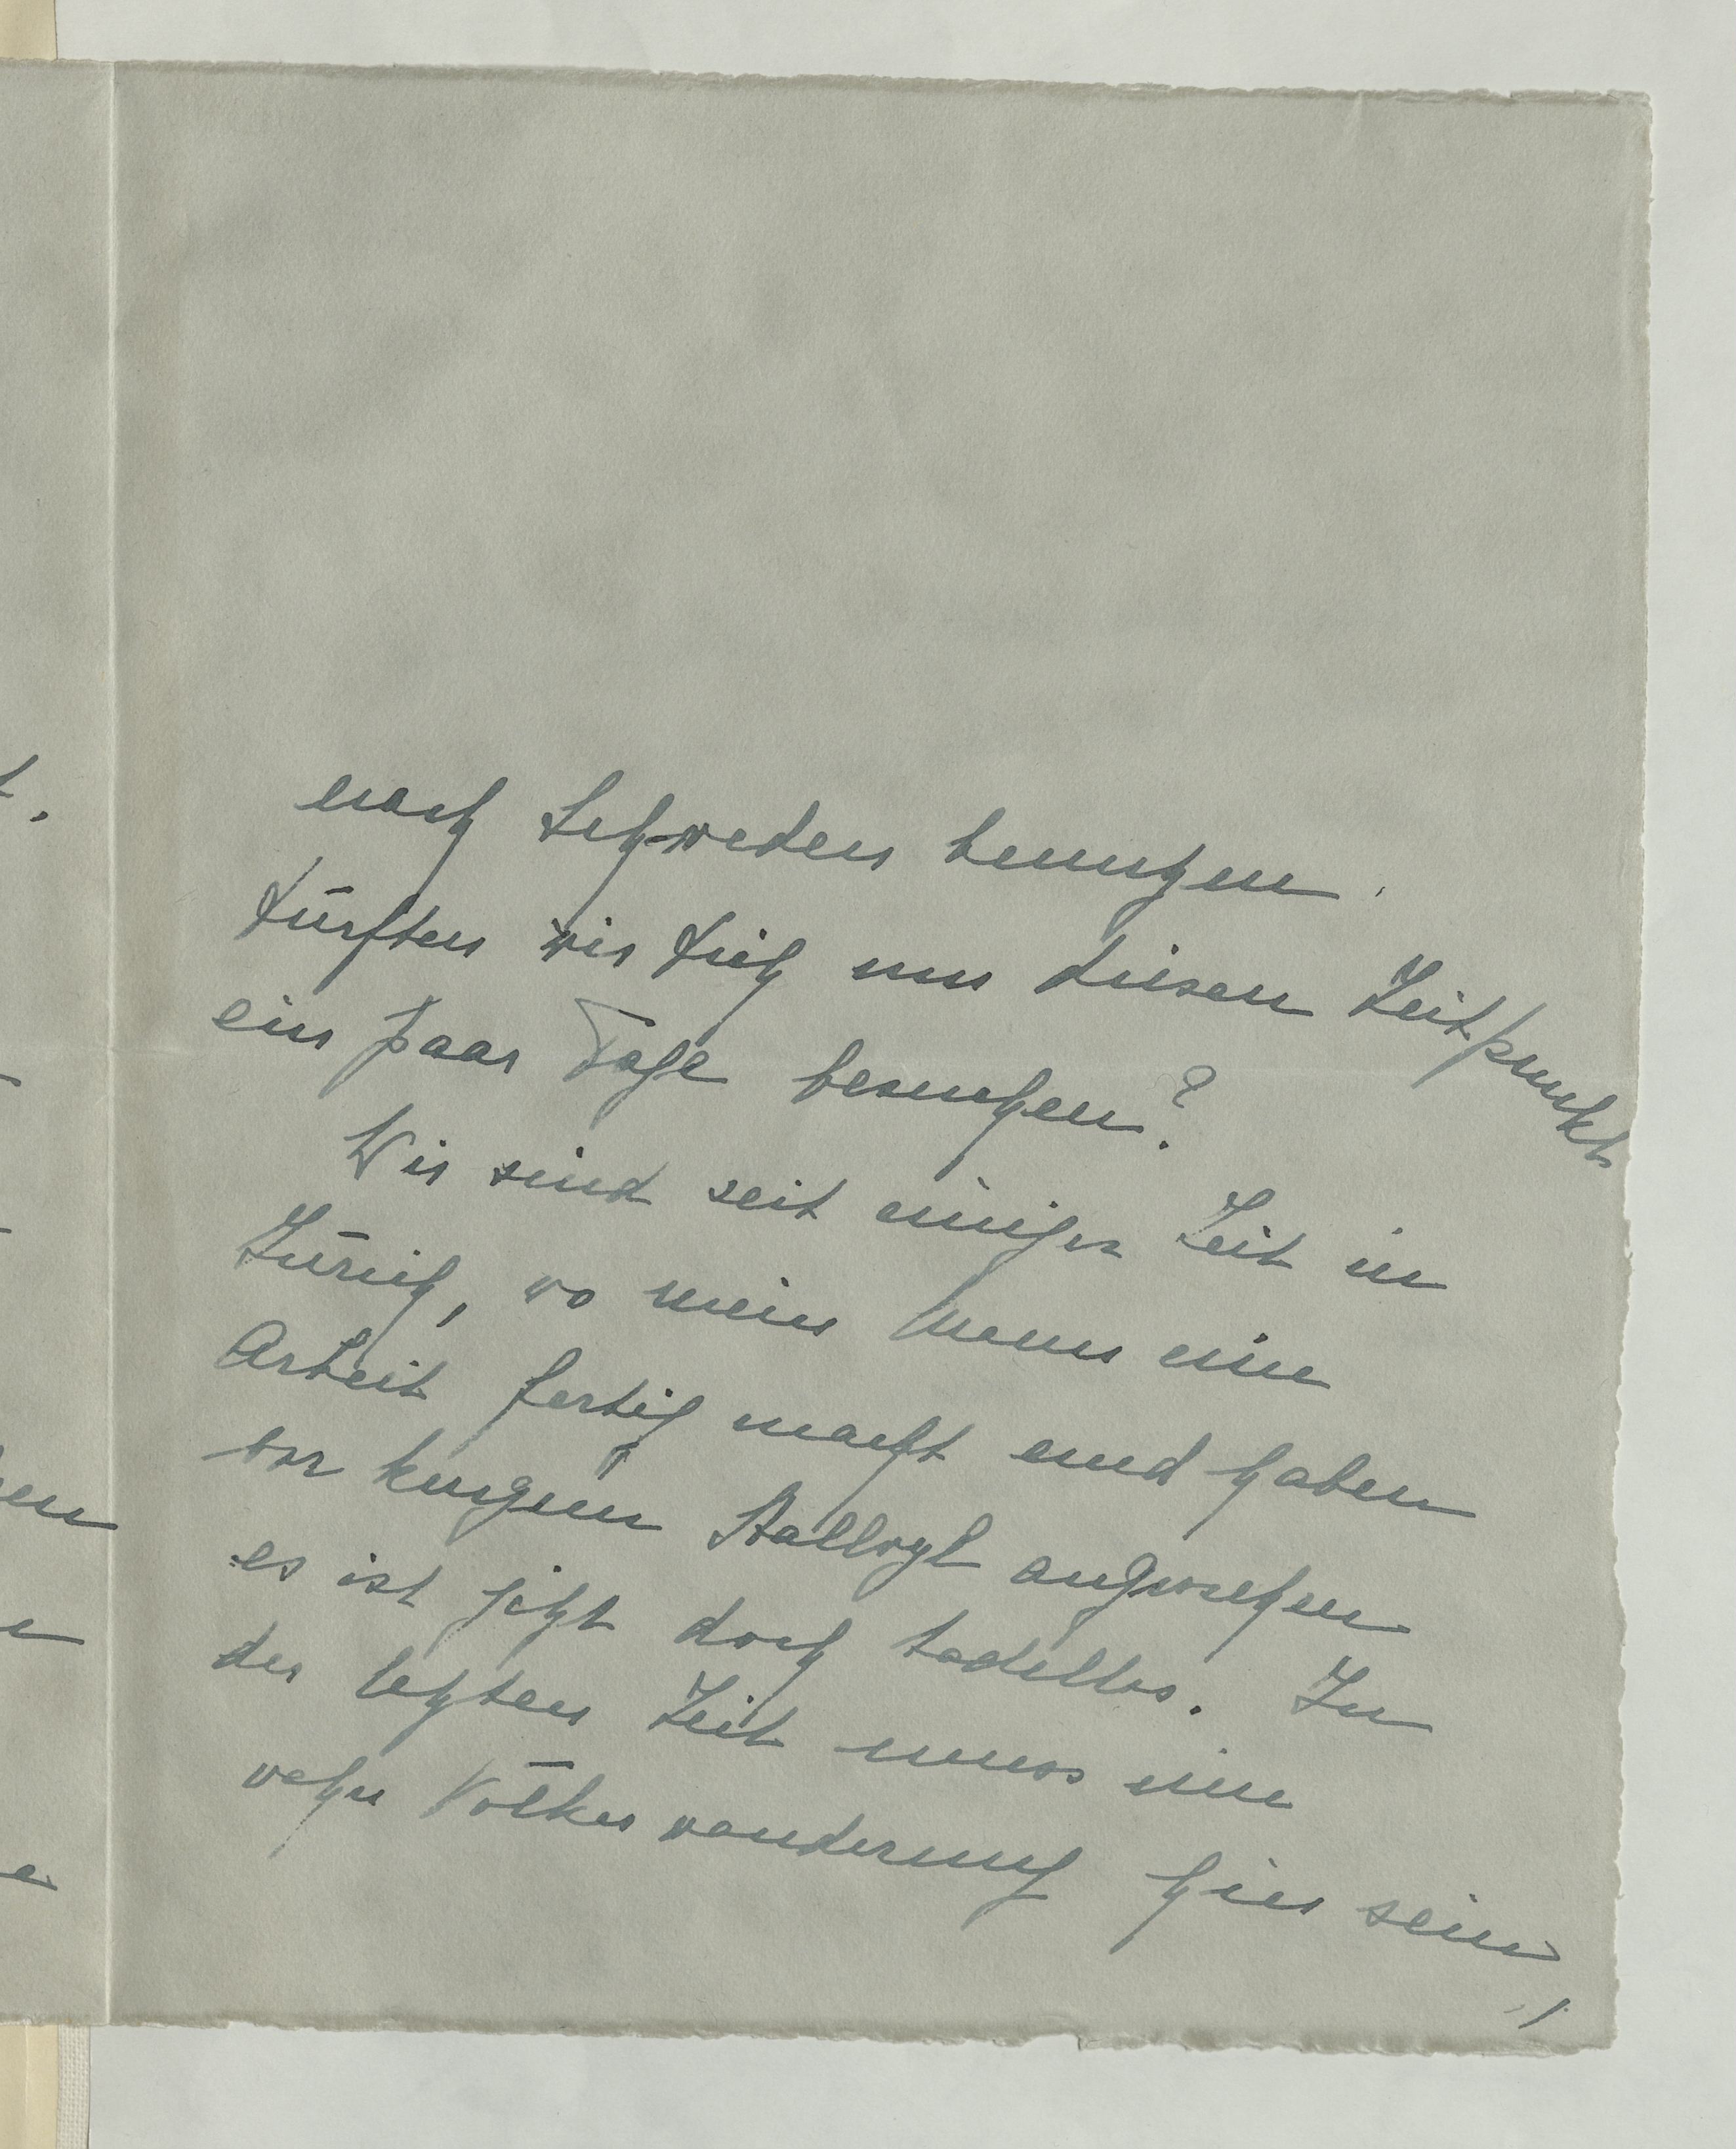 nach Schweden benutzen.
Dürften wir Dich um diesen Zeitpunkt
ein paar Tage besuchen?
Wir sind seit einiger Zeit in
Zürich, wo mein Mann eine
Arbeit fertig macht und haben
vor kurzem angesehen
es ist jetzt doch tadellos. In
der letzten Zeit muss eine
wahre Völkerwanderung hier sein